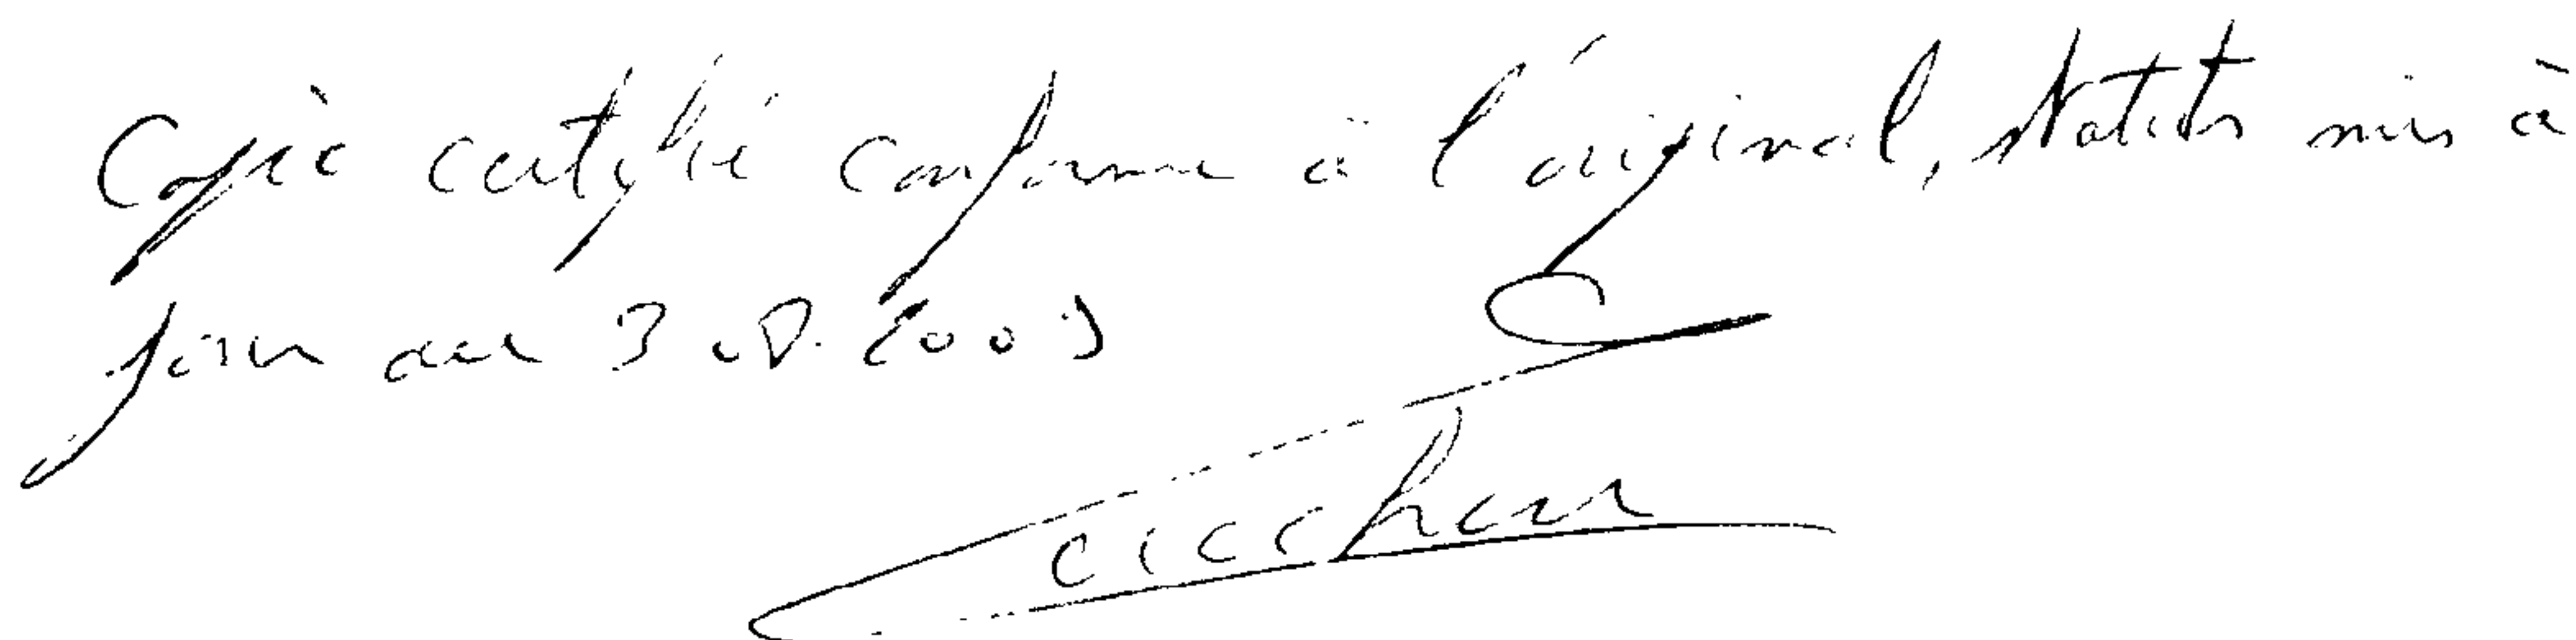 Copie certifié conforme à l'original, statuts mis à
jour au 3 08. 2009